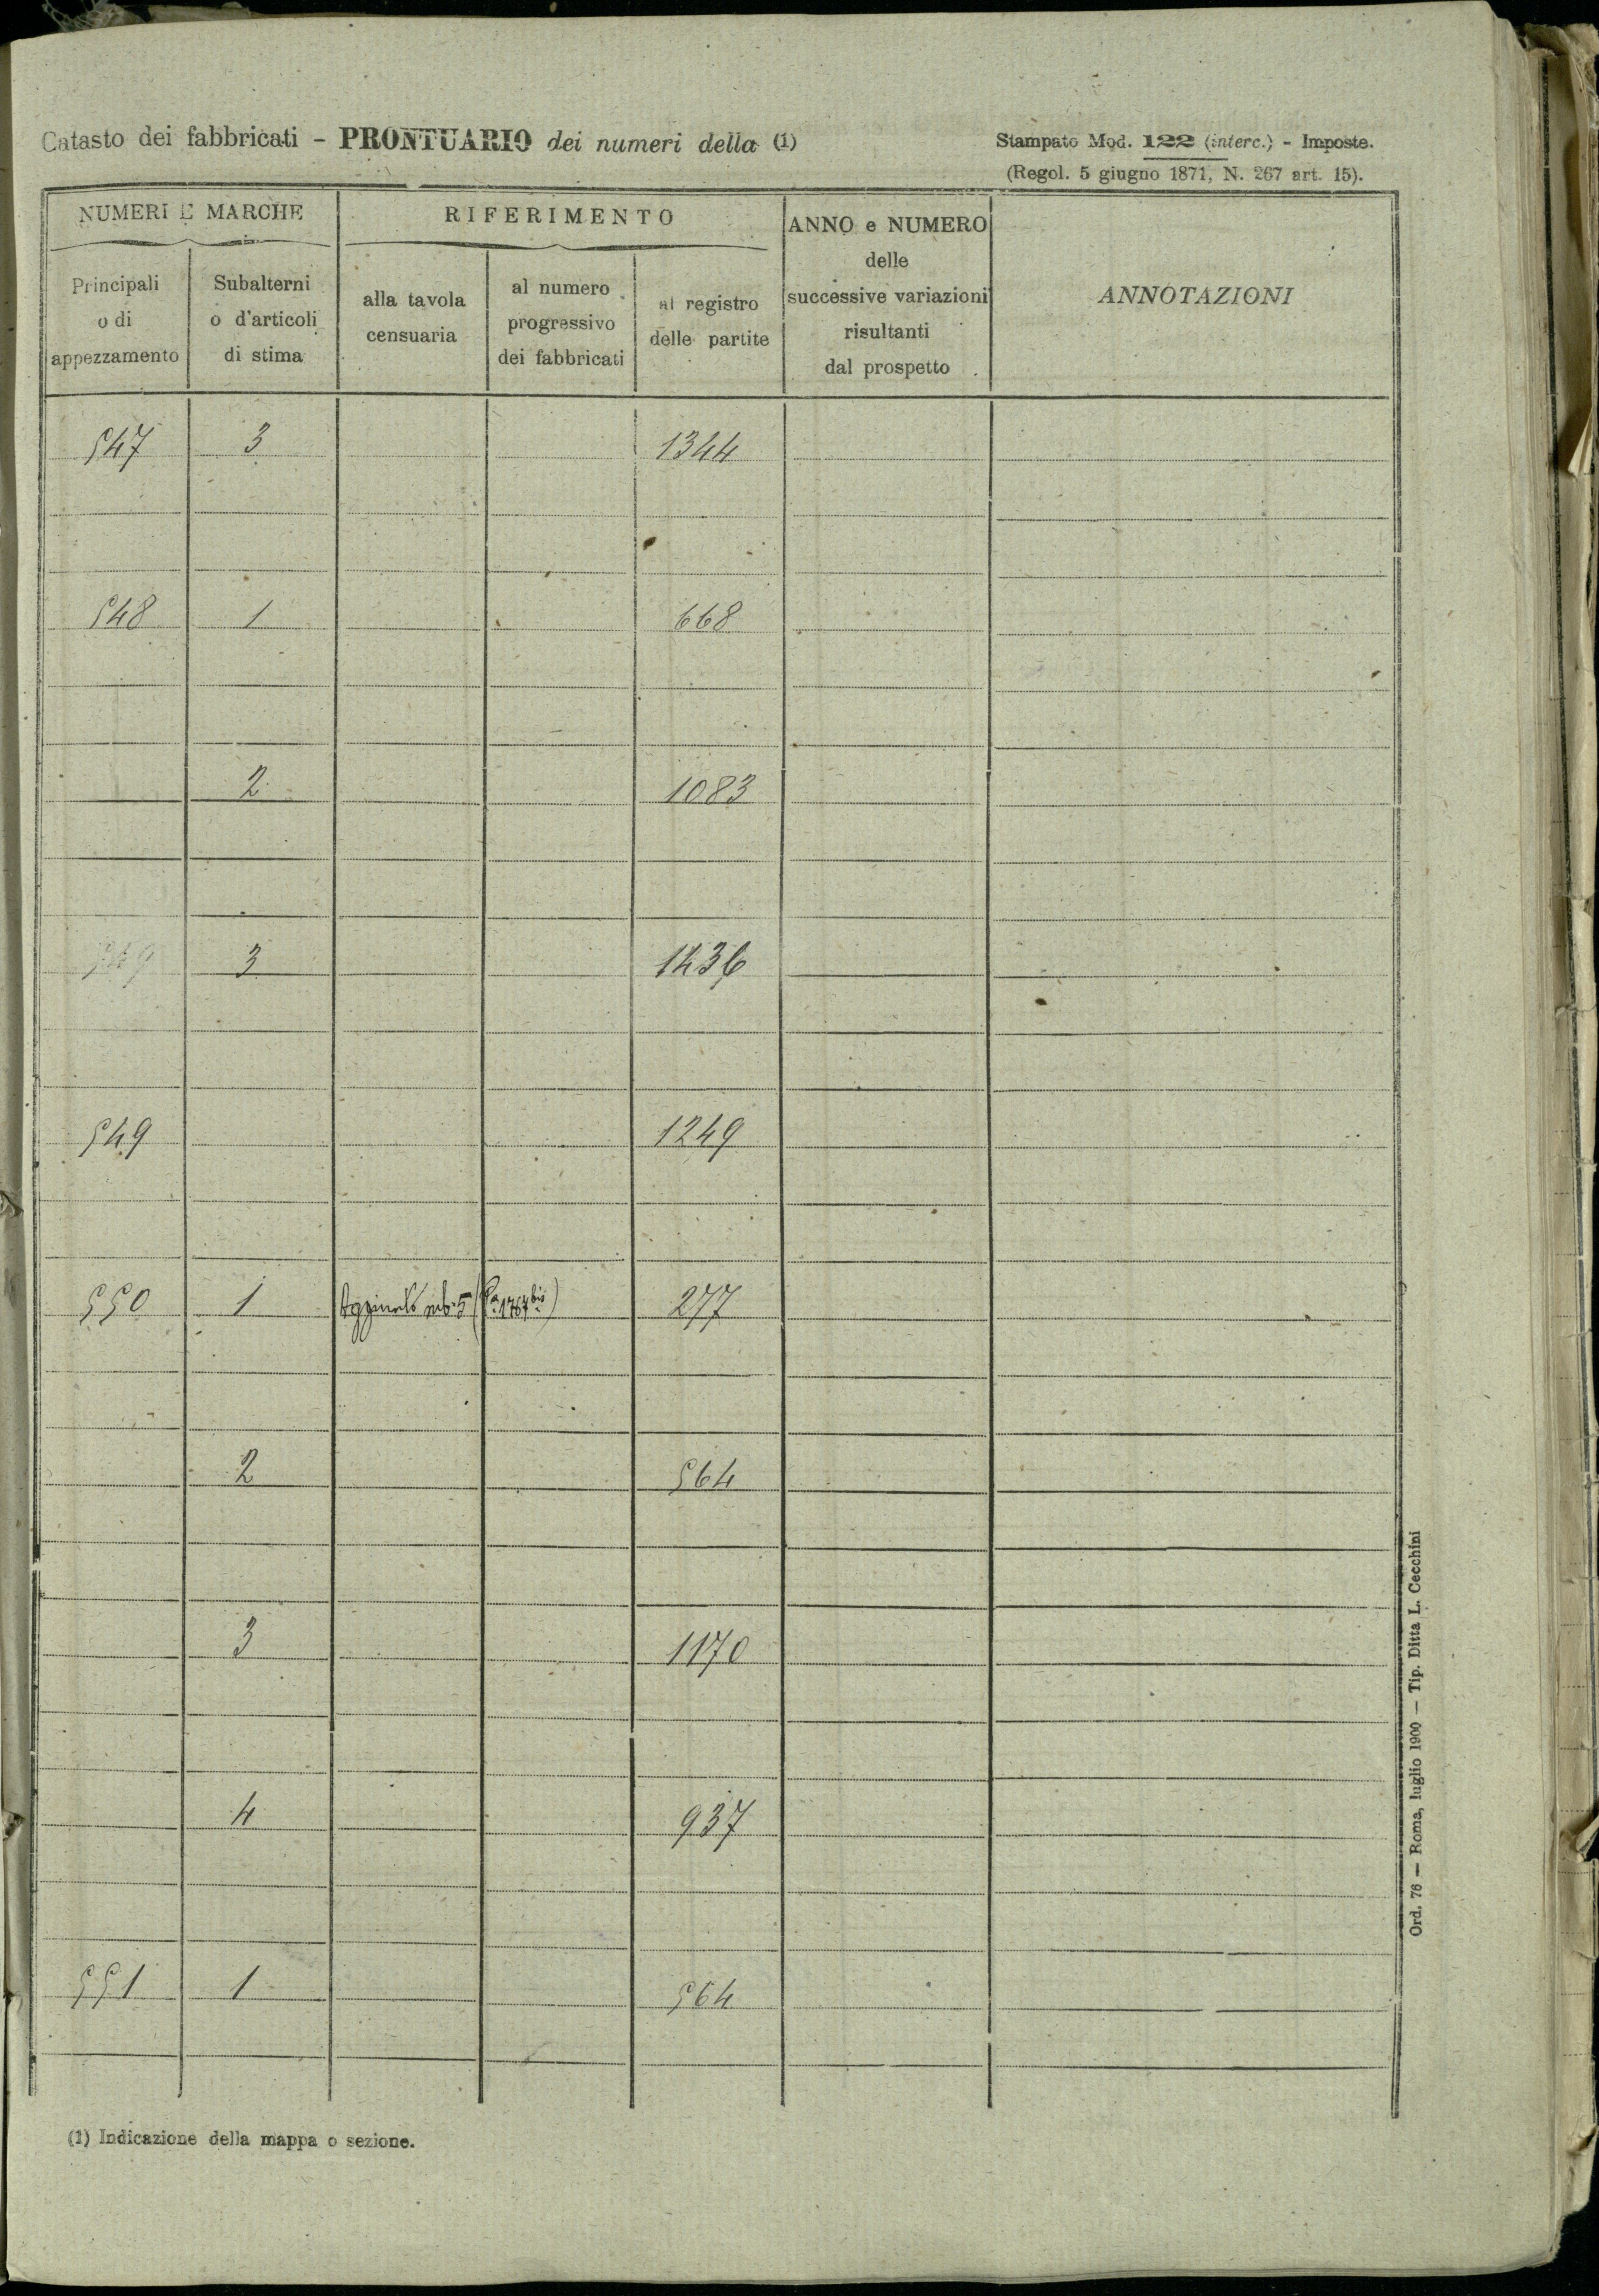 Catasto dei fabbricati - PRONTUARIO dei numeri della (1)
Stampato Mod. 122 (interc.) - Imposte.
(Regol. 5 giugno 1871, N. 267 art. 15).
NUMERI E MARCHE
RIFERIMENTO
ANNO e NUMERO
delle
successive variazioni
risultanti
dal prospetto
ANNOTAZIONI
Principali
o di
appezzamento
Subalterni
o d'articoli
di stima
alla tavola
censuaria
al numero
progressivo
dei fabbricati
al registro
delle partite
547 3 1344
548 1 668
2 1083
549 3 1436
549 1249
550 1 sub. 5 (Pa 1767 bis) 277
2 564
3 1170
4 937
551 1 564
(1) Indicazione della mappa o sezione.
Ord. 76 — Roma, luglio 1900 — Tip. Ditta L. Cecchini